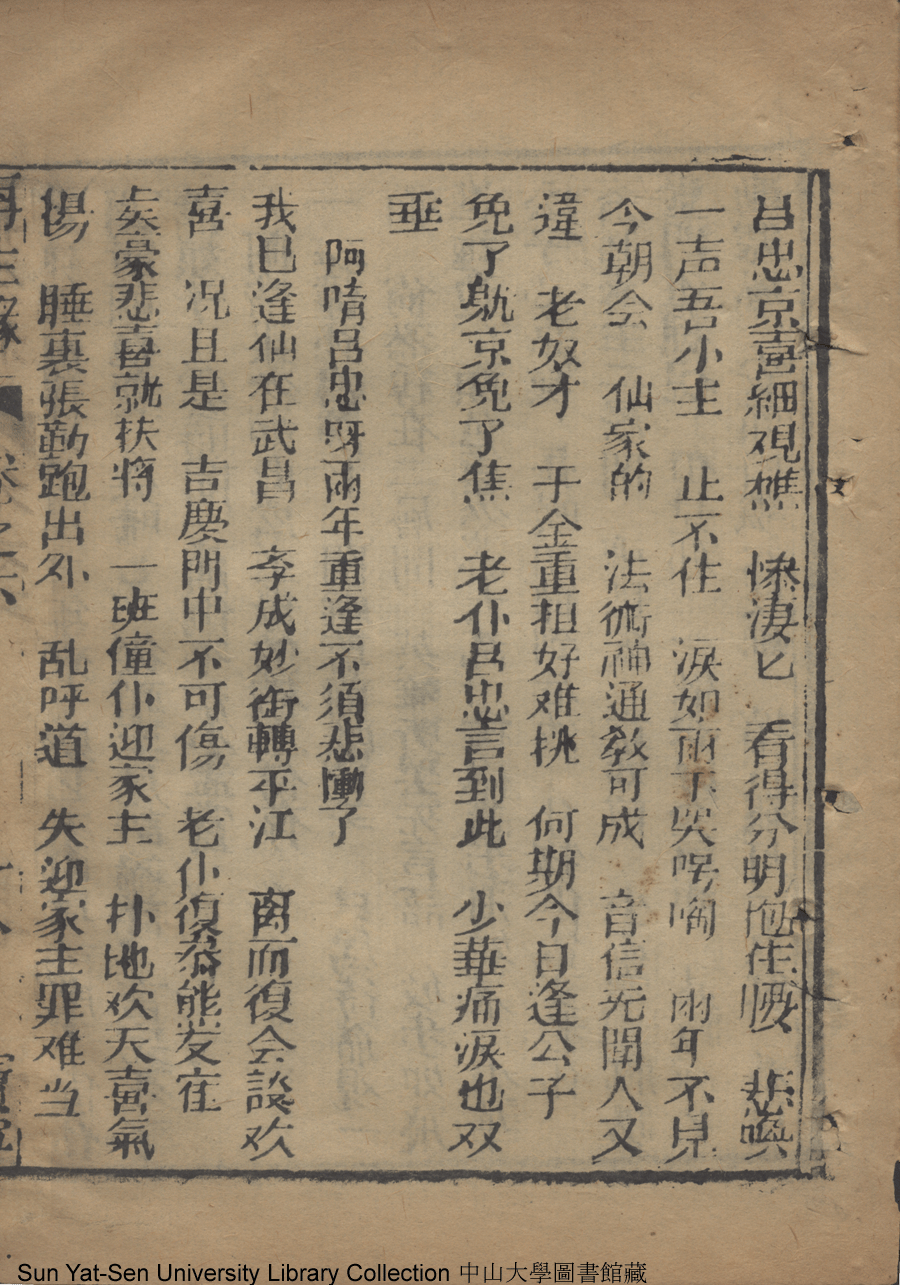 吕忠京喜細視樵　慘淒匕　看得分明抱住腰　悲喚
一声吾小主　止不住　淚如雨下哭号啕　兩年不見
今朝会　仙家的　法術神通教可成　音信无聞人又
違　老奴才　千金重担好难挑　何期今日逢公子
免了躭京免了焦　老仆吕忠言到此　少華痛淚也双
垂
阿唷吕忠呀兩年重逢不須悲慟了
我已逢仙在武昌　李成妙術轉平江　离而復会談欢
喜　况且是　吉慶門中不可傷　老仆復恭能发在
豪悲喜就扶将　一班僮仆迎家主　扑地欢天喜氣
揚　睡裏張勤跑出外　乱呼道　失迎家主罪难当
再生緣　卷之六
Sun Yat-Sen University Library Collection 中山大學圖書館藏